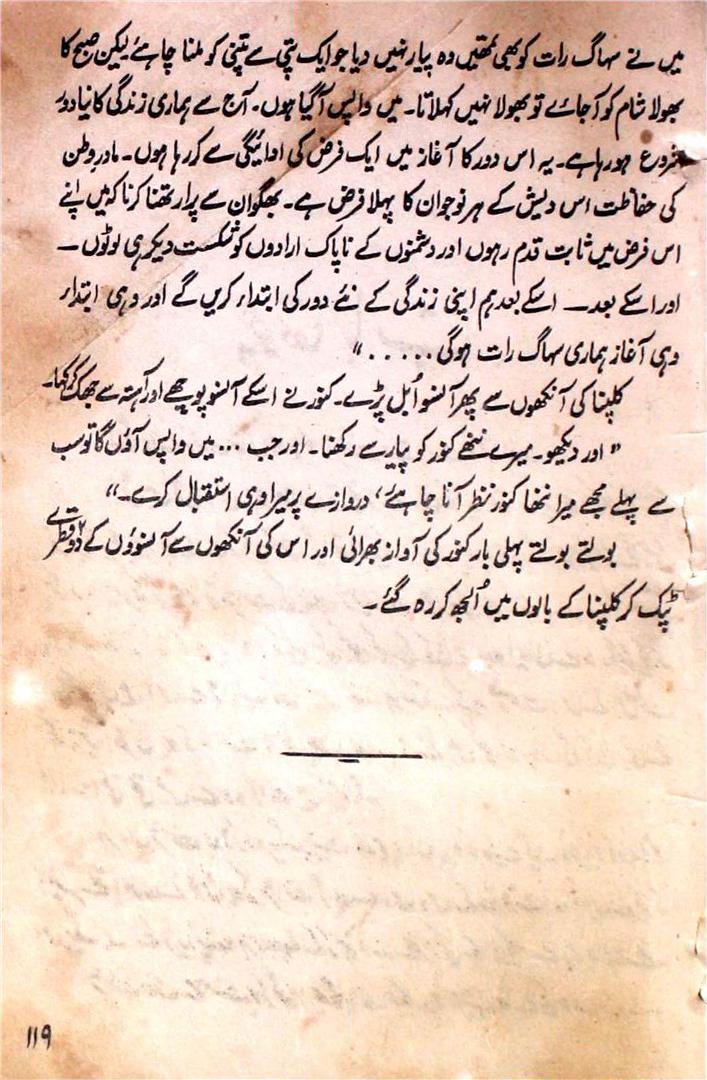 میں نے سہاگ رات کو بھی تمھیں وہ پیار نہیں دیا جو ایک پتی سے پتنی کو ملنا چاہئے لیکن صبح کا
بھولا شام کو آجائے تو بھولا نہیں کہلاتا۔ میں واپس آگیا ہوں۔ آج سے ہماری زندگی کا نیا دور
شروع ہو رہا ہے۔ یہ اس دور کا آغاز میں ایک فرض کی ادائیگی سے کر رہا ہوں۔ مادرِ وطن
کی حفاظت اس دیش کے ہر نوجوان کا پہلا فرض ہے۔ بھگوان سے پرارتھنا کرنا کہ میں اپنے
اس فرض میں ثابت قدم رہوں اور دشمنوں کے ناپاک ارادوں کو شکست دیکر ہی لوٹوں ــ
اور اسکے بعد ــ اسکے بعد ہم اپنی زندگی کے نئے دور کی ابتداء کریں گے اور وہی ابتداء
وہی آغاز ہماری سہاگ رات ہوگی ۔۔۔۔۔"
کلپنا کی آنکھوں سے پھر آنسو اُبل پڑے۔ کنور نے اسکے آنسو پوچھے اور آہستہ سے جھک کر کہا۔
" اور دیکھو۔ میرے ننھے کنور کو پیار سے رکھنا۔ اور جب ... میں واپس آؤں گا تو سب
سے پہلے مجھے میرا ننھا کنور نظر آنا چاہئے، دروازے پر میرا وہی استقبال کرے۔"
بولتے بولتے پہلی بار کنور کی آواز بھرائی اور اس کی آنکھوں سے آنسوؤں کے دو قطرے
ٹپک کر کلپنا کے بالوں میں اُلجھ کر رہ گئے۔
۱۱۹